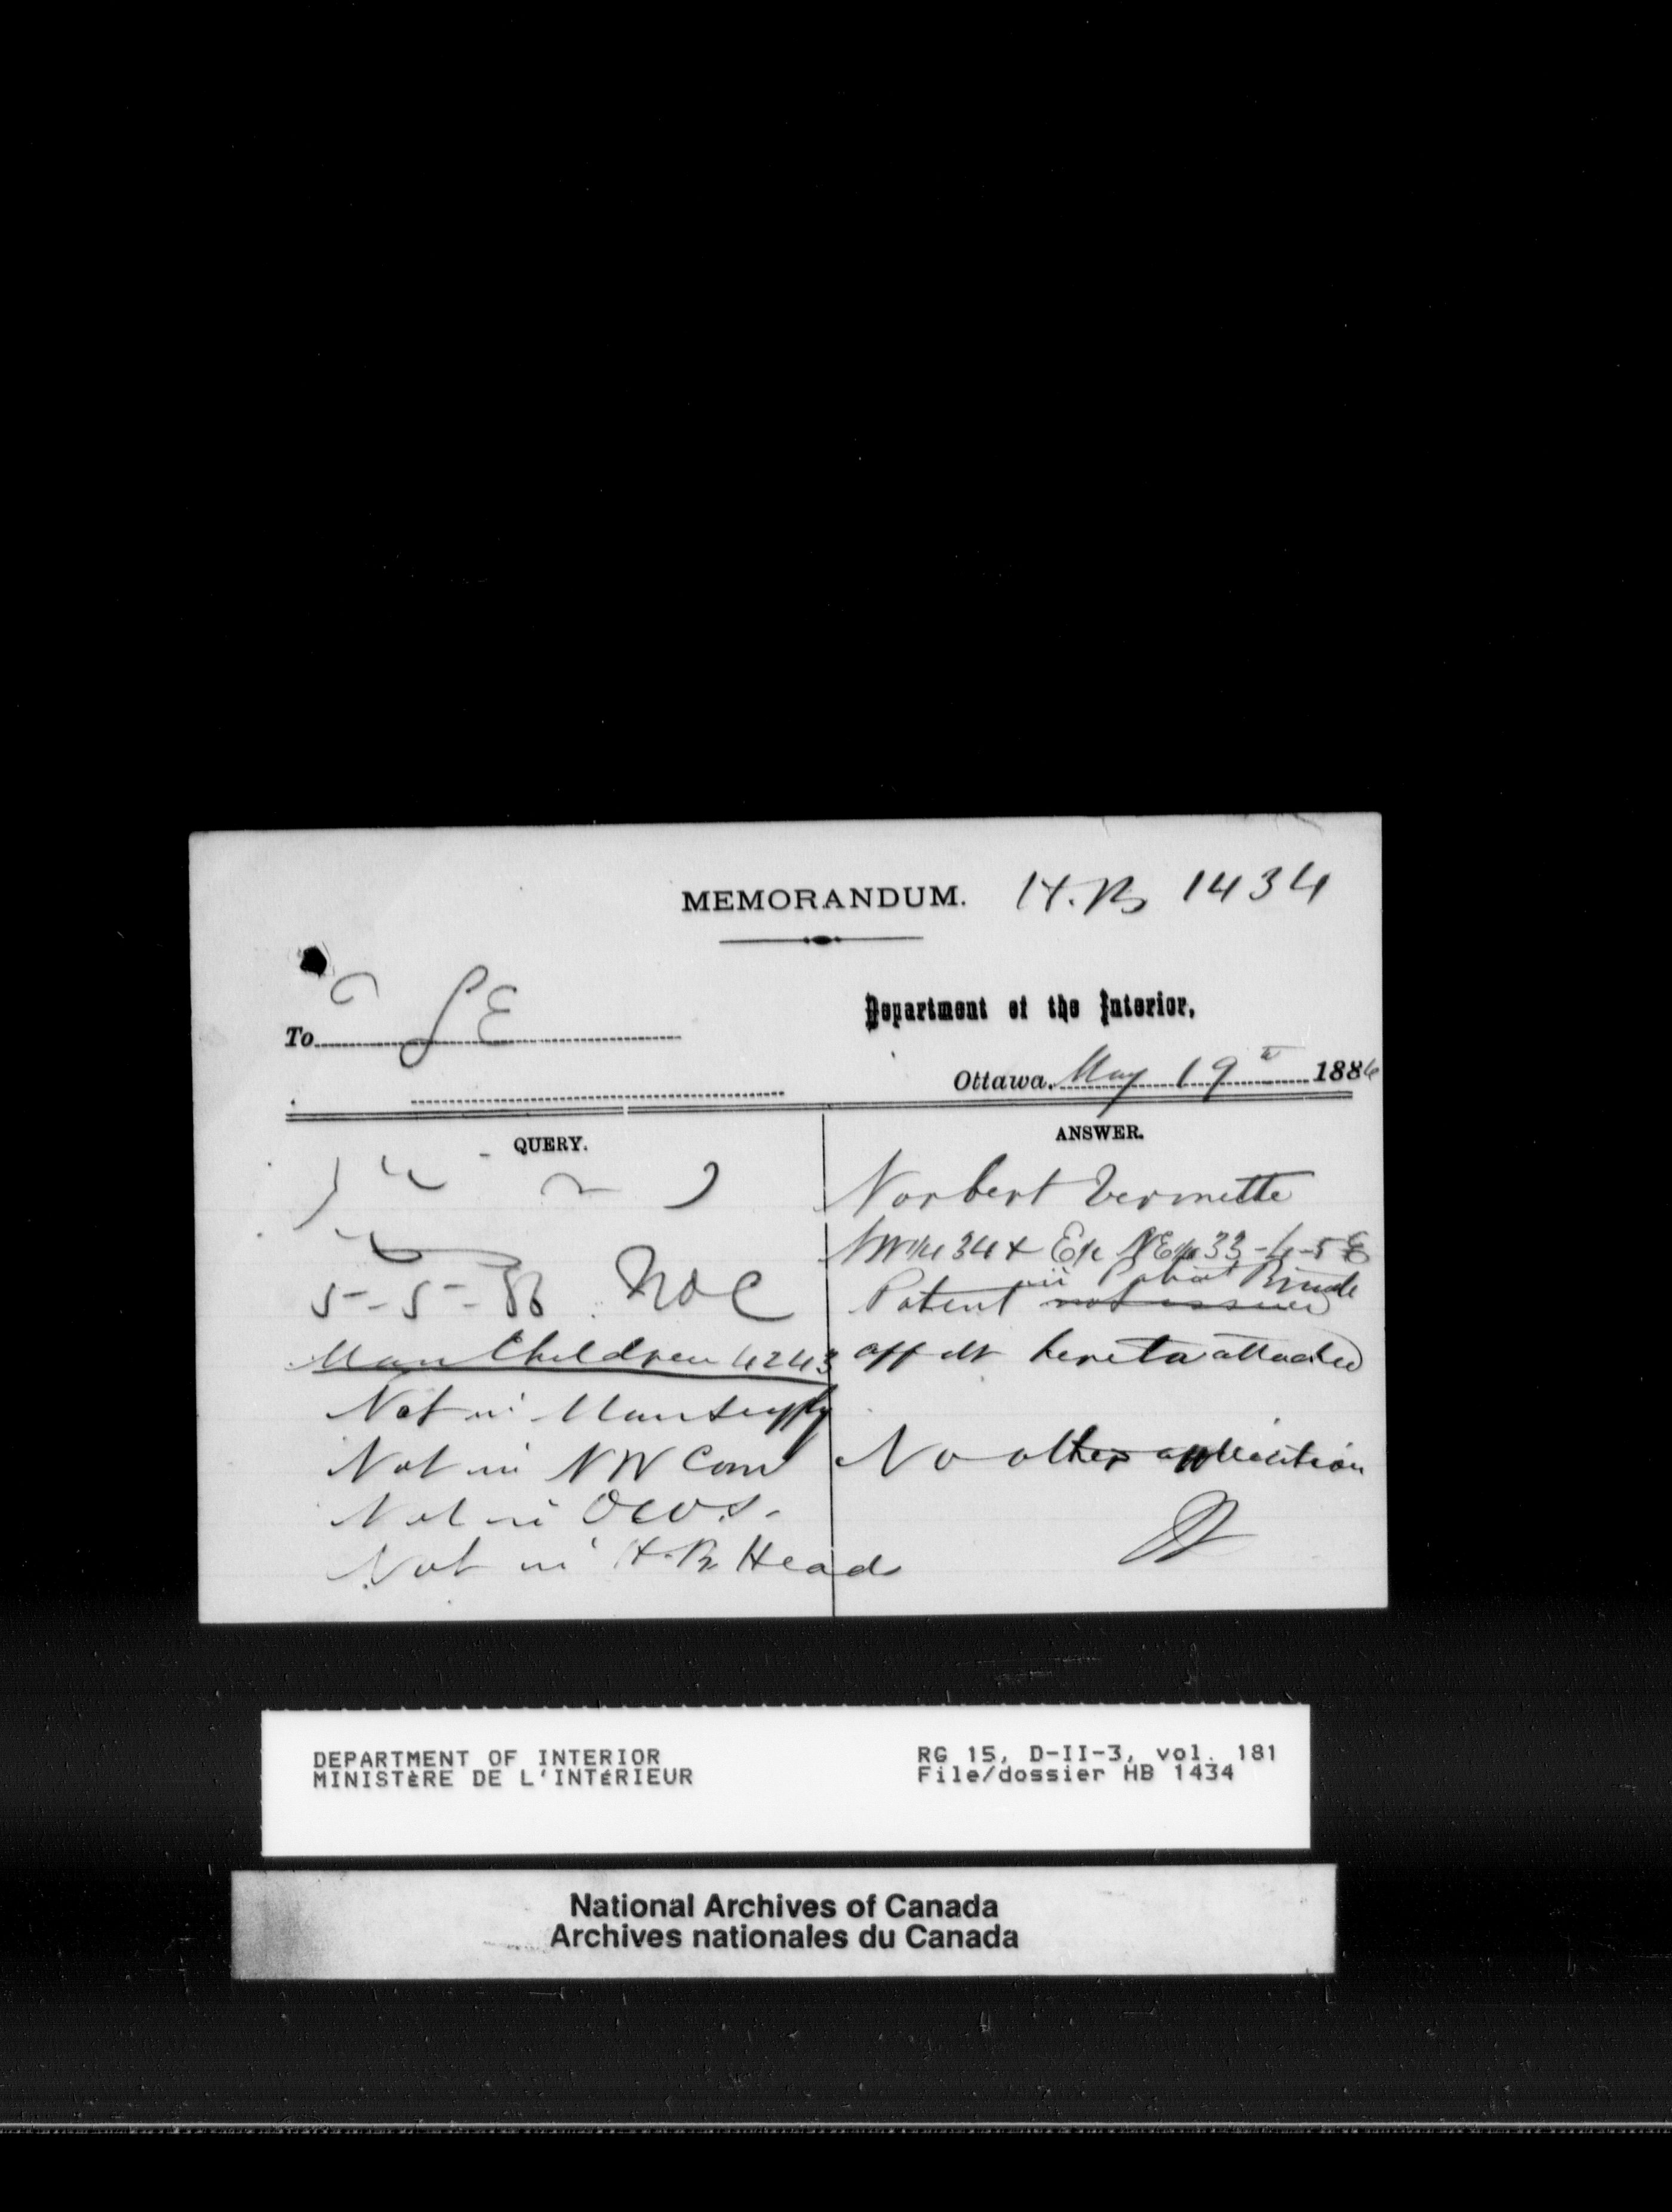 MEMORANDUM. H.B 1434
To GE
Department of the Interior,
Ottawa, May 19th 1886
QUERY.
ANSWER.
5-5-86
Man Children 4243
Not in Man Supply
Not in NW Com
Not in OWS.
Not in H.B Heads
Norbert Vermette
NW1/4 34 & E1/2 NE1/4 33-4-5 E
Patent not issued
in Patent
hereto attached
No other application
DEPARTMENT OF INTERIOR
MINISTÈRE DE L'INTÉRIEUR
RG 15, D-II-3, vol. 181
File/dossier HB 1434
National Archives of Canada
Archives nationales du Canada